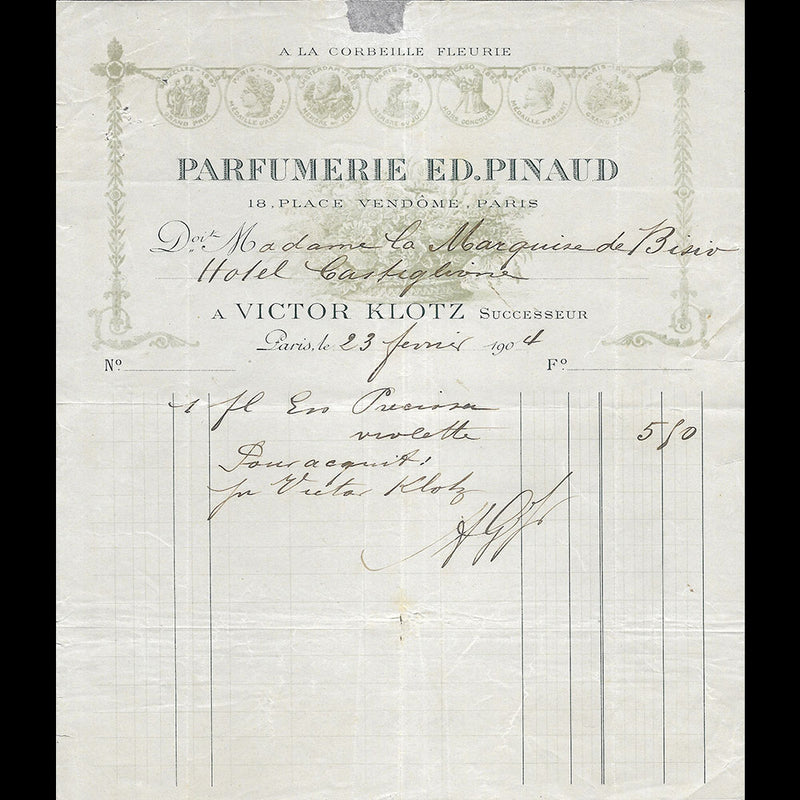 A LA CORBEILLE FLEURIE
PARIS
MÉDAILLE D'ARGENT
GRAND PRIX
HORS CONCOURS
PARFUMERIE ED. PINAUD
18, PLACE VENDÔME, PARIS
Doit Madame la Marquise de Bisio
Hotel Castiglione
A VICTOR KLOTZ SUCCESSEUR
Paris, le 23 fevrier 1904
No. Fo.
1 fl Ess Preciosa
violette 5 50
Pour acquit:
pr Victor Klotz